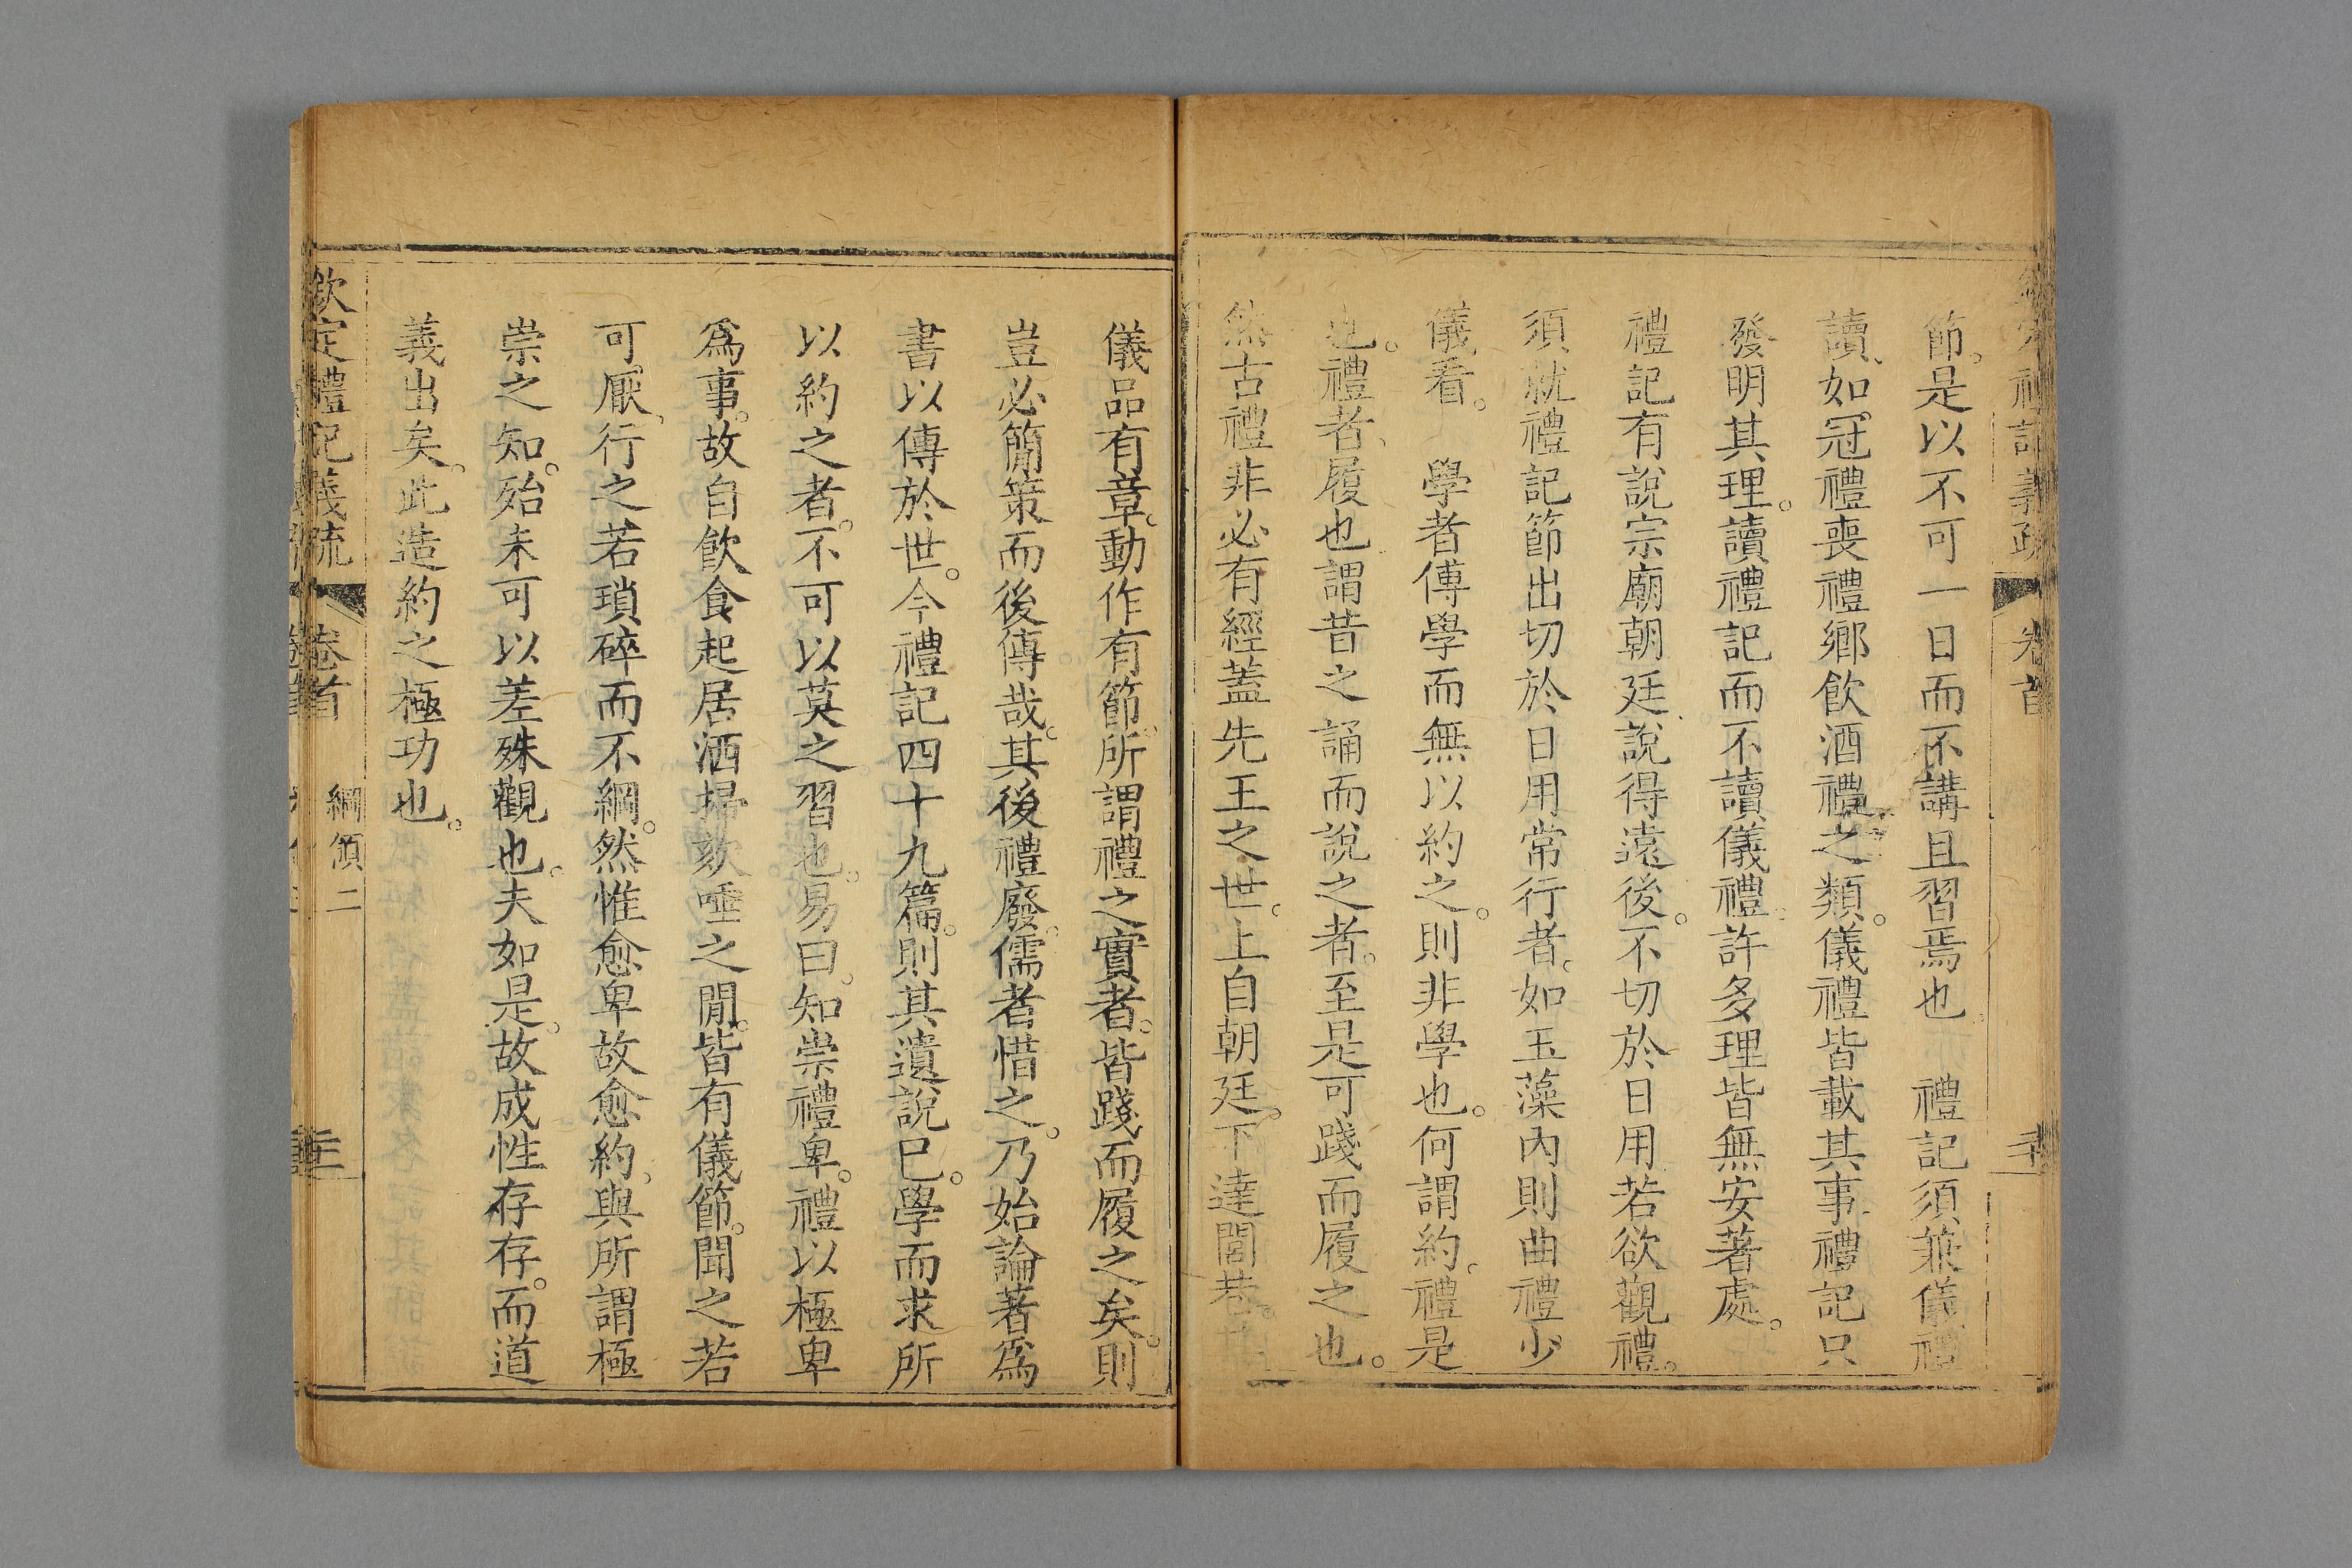 節。是以不可一日而不講且習焉也。禮記須兼儀禮
讀、如冠禮喪禮鄉飲酒禮之類。儀禮皆載其事、禮記只
發明其理。讀禮記而不讀儀禮。許多理皆無安著處。
禮記有說宗廟朝廷、說得遠後。不切於日用若欲觀禮。
須就禮記節出切於日用常行者。如玉藻內則曲禮少
儀看。學者傅學而無以約之。則非學也。何謂約。禮是
也。禮者、履也謂昔之誦而說之者。至是可踐而履之也。
然古禮非必有經蓋先王之世。上自朝廷。下達閭巷。其
儀品有章。動作有節。所謂禮之實者。皆踐而履之矣。則
豈必簡策而後傳哉。其後禮廢。儒者惜之。乃始論著為
書以傳於世。今禮記四十九篇。則其遺說已。學而求所
以約之者。不可以莫之習也。易曰。知崇禮卑。禮以極卑
為事。故自飲食起居洒掃欬唾之閒。皆有儀節。聞之若
可厭、行之若瑣碎而不綱。然惟愈卑故愈約、與所謂極
崇之知。殆未可以差殊觀也。夫如是。故成性存存。而道
義出矣。此造約之極功也。
欽定禮記義疏 卷首 綱領二